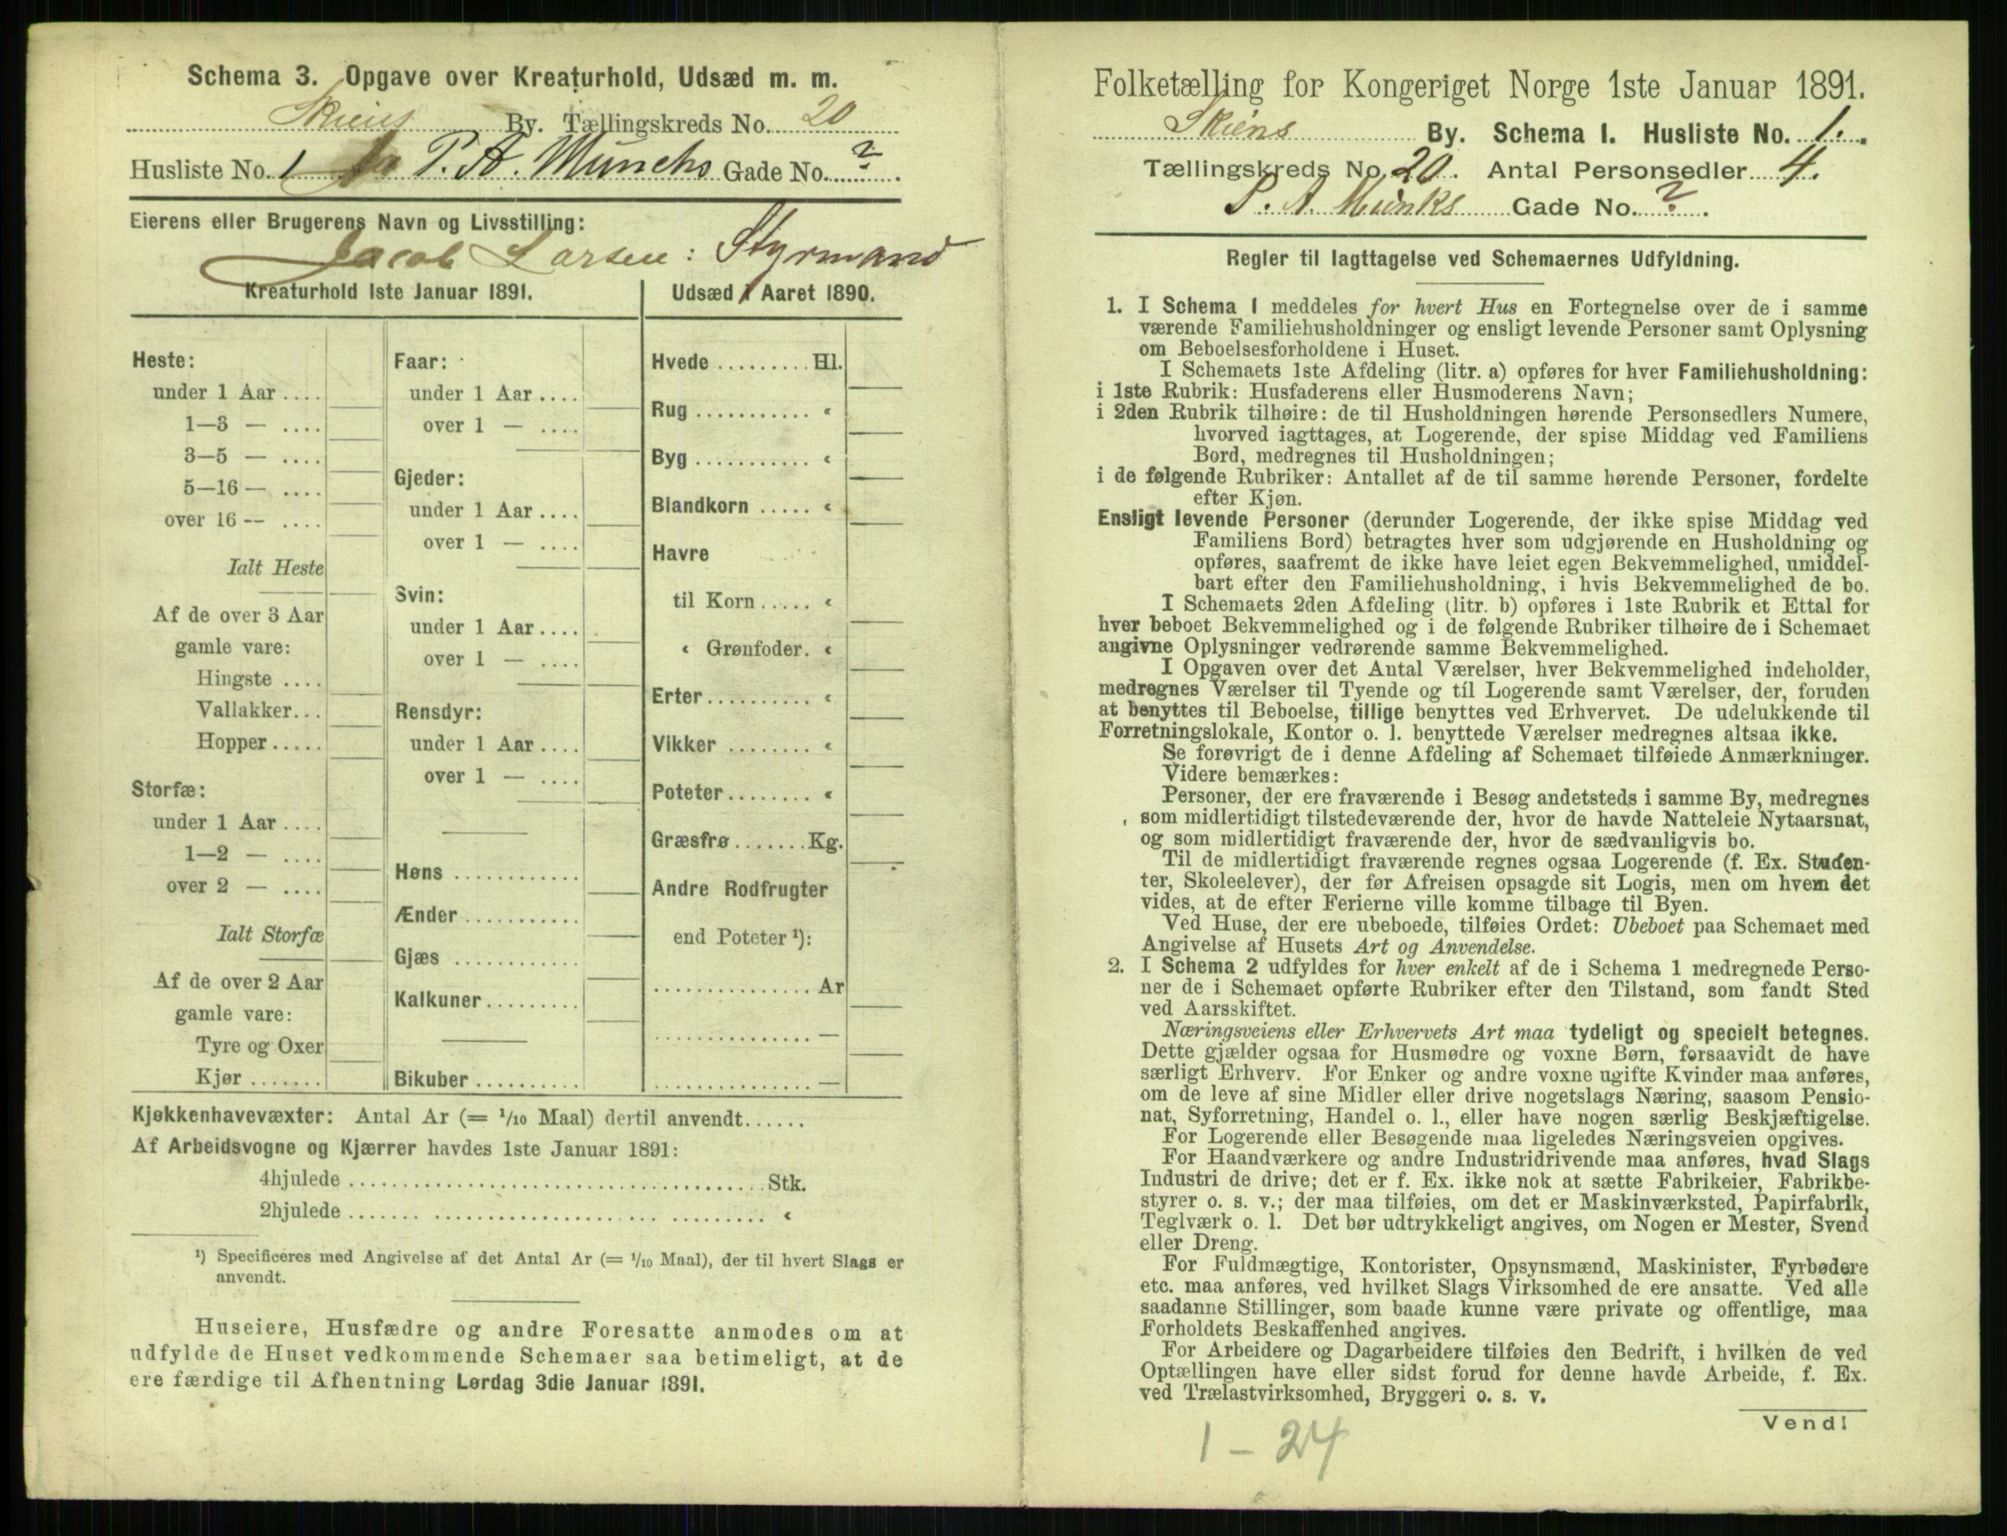 Schema 3. Opgave over Kreaturhold, Udsæd m. m.
Skiens By. Tællingskreds No. 20
Husliste No. 1 P. A. Munchs Gade No. ?
Eierens eller Brugerens Navn og Livsstilling:
Jacob Larsen: Styrmand
Kreaturhold 1ste Januar 1891.
Heste:
under 1 Aar ....
1—3 — ....
3—5 — ....
5—16 — ....
over 16 — ....
Ialt Heste
Af de over 3 Aar
gamle vare:
Hingste ....
Vallakker...
Hopper.....
Storfæ:
under 1 Aar ....
1—2 — ....
over 2 — ....
Ialt Storfæ
Af de over 2 Aar
gamle vare:
Tyre og Oxer
Kjør .......
Faar:
under 1 Aar ....
over 1 — ....
Gjeder:
under 1 Aar ....
over 1 — ....
Svin:
under 1 Aar ....
over 1 — ....
Rensdyr:
under 1 Aar ....
over 1 — ....
Høns ...........
Ænder ..........
Gjæs ...........
Kalkuner ........
Bikuber ..........
Udsæd i Aaret 1890.
Hvede ......... Hl.
Rug ........... «
Byg ........... «
Blandkorn ..... «
Havre
til Korn ..... «
« Grønfoder. «
Erter .......... «
Vikker ........ «
Poteter ........ «
Græsfrø ....... Kg.
Andre Rodfrugter
end Poteter ¹):
............... Ar
............... —
............... —
Kjøkkenhavevæxter: Antal Ar (= 1/10 Maal) dertil anvendt......
Af Arbeidsvogne og Kjærrer havdes 1ste Januar 1891:
4hjulede ...................................... Stk.
2hjulede ...................................... «
¹) Specificeres med Angivelse af det Antal Ar (= 1/10 Maal), der til hvert Slags er
anvendt.
Huseiere, Husfædre og andre Foresatte anmodes om at
udfylde de Huset vedkommende Schemaer saa betimeligt, at de
ere færdige til Afhentning Lørdag 3die Januar 1891.
Folketælling for Kongeriget Norge 1ste Januar 1891.
Skiens By. Schema I. Husliste No. 1.
Tællingskreds No. 20. Antal Personsedler 4.
P. A. Munks Gade No. ?.
Regler til Iagttagelse ved Schemaernes Udfyldning.
1. I Schema I meddeles for hvert Hus en Fortegnelse over de i samme
værende Familiehusholdninger og ensligt levende Personer samt Oplysning
om Beboelsesforholdene i Huset.
I Schemaets 1ste Afdeling (litr. a) opføres for hver Familiehusholdning:
i 1ste Rubrik: Husfaderens eller Husmoderens Navn;
i 2den Rubrik tilhøire: de til Husholdningen hørende Personsedlers Numere,
hvorved iagttages, at Logerende, der spise Middag ved Familiens
Bord, medregnes til Husholdningen;
i de følgende Rubriker: Antallet af de til samme hørende Personer, fordelte
efter Kjøn.
Ensligt levende Personer (derunder Logerende, der ikke spise Middag ved
Familiens Bord) betragtes hver som udgjørende en Husholdning og
opføres, saafremt de ikke have leiet egen Bekvemmelighed, umiddel-
bart efter den Familiehusholdning, i hvis Bekvemmelighed de bo.
I Schemaets 2den Afdeling (litr. b) opføres i 1ste Rubrik et Ettal for
hver beboet Bekvemmelighed og i de følgende Rubriker tilhøire de i Schemaet
angivne Oplysninger vedrørende samme Bekvemmelighed.
I Opgaven over det Antal Værelser, hver Bekvemmelighed indeholder,
medregnes Værelser til Tyende og til Logerende samt Værelser, der, foruden
at benyttes til Beboelse, tillige benyttes ved Erhvervet. De udelukkende til
Forretningslokale, Kontor o. l. benyttede Værelser medregnes altsaa ikke.
Se forøvrigt de i denne Afdeling af Schemaet tilføiede Anmærkninger.
Videre bemærkes:
Personer, der ere fraværende i Besøg andetsteds i samme By, medregnes
som midlertidigt tilstedeværende der, hvor de havde Natteleie Nytaarsnat,
og som midlertidigt fraværende der, hvor de sædvanligvis bo.
Til de midlertidigt fraværende regnes ogsaa Logerende (f. Ex. Studen-
ter, Skoleelever), der før Afreisen opsagde sit Logis, men om hvem det
vides, at de efter Ferierne ville komme tilbage til Byen.
Ved Huse, der ere ubeboede, tilføies Ordet: Ubeboet paa Schemaet med
Angivelse af Husets Art og Anvendelse.
2. I Schema 2 udfyldes for hver enkelt af de i Schema 1 medregnede Perso-
ner de i Schemaet opførte Rubriker efter den Tilstand, som fandt Sted
ved Aarsskiftet.
Næringsveiens eller Erhvervets Art maa tydeligt og specielt betegnes.
Dette gjælder ogsaa for Husmødre og voxne Børn, forsaavidt de have
særligt Erhverv. For Enker og andre voxne ugifte Kvinder maa anføres,
om de leve af sine Midler eller drive nogetslags Næring, saasom Pensio-
nat, Syforretning, Handel o. l., eller have nogen særlig Beskjæftigelse.
For Logerende eller Besøgende maa ligeledes Næringsveien opgives.
For Haandværkere og andre Industridrivende maa anføres, hvad Slags
Industri de drive; det er f. Ex. ikke nok at sætte Fabrikeier, Fabrikbe-
styrer o. s. v.; der maa tilføies, om det er Maskinværksted, Papirfabrik,
Teglværk o. l. Det bør udtrykkeligt angives, om Nogen er Mester, Svend
eller Dreng.
For Fuldmægtige, Kontorister, Opsynsmænd, Maskinister, Fyrbødere
etc. maa anføres, ved hvilket Slags Virksomhed de ere ansatte. Ved alle
saadanne Stillinger, som baade kunne være private og offentlige, maa
Forholdets Beskaffenhed angives.
For Arbeidere og Dagarbeidere tilføies den Bedrift, i hvilken de ved
Optællingen have eller sidst forud for denne havde Arbeide, f. Ex.
ved Trælastvirksomhed, Bryggeri o. s. v.
Vend!
1 - 24